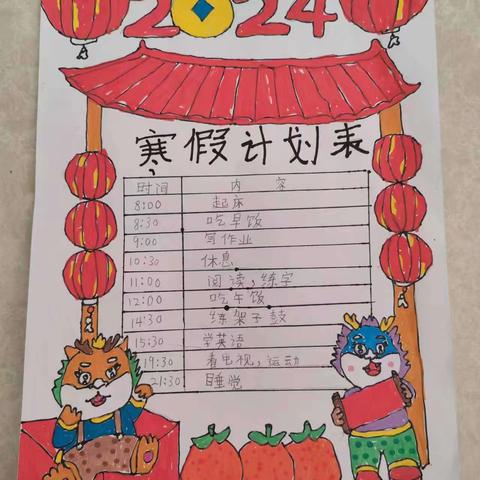 2024
寒假计划表
时间 内容
8:00 起床
8:30 吃早饭
9:00 写作业
10:30 休息
11:00 阅读,练字
12:00 吃午饭
14:30 练架子鼓
15:30 学英语
19:30 看电视,运动
21:30 睡觉